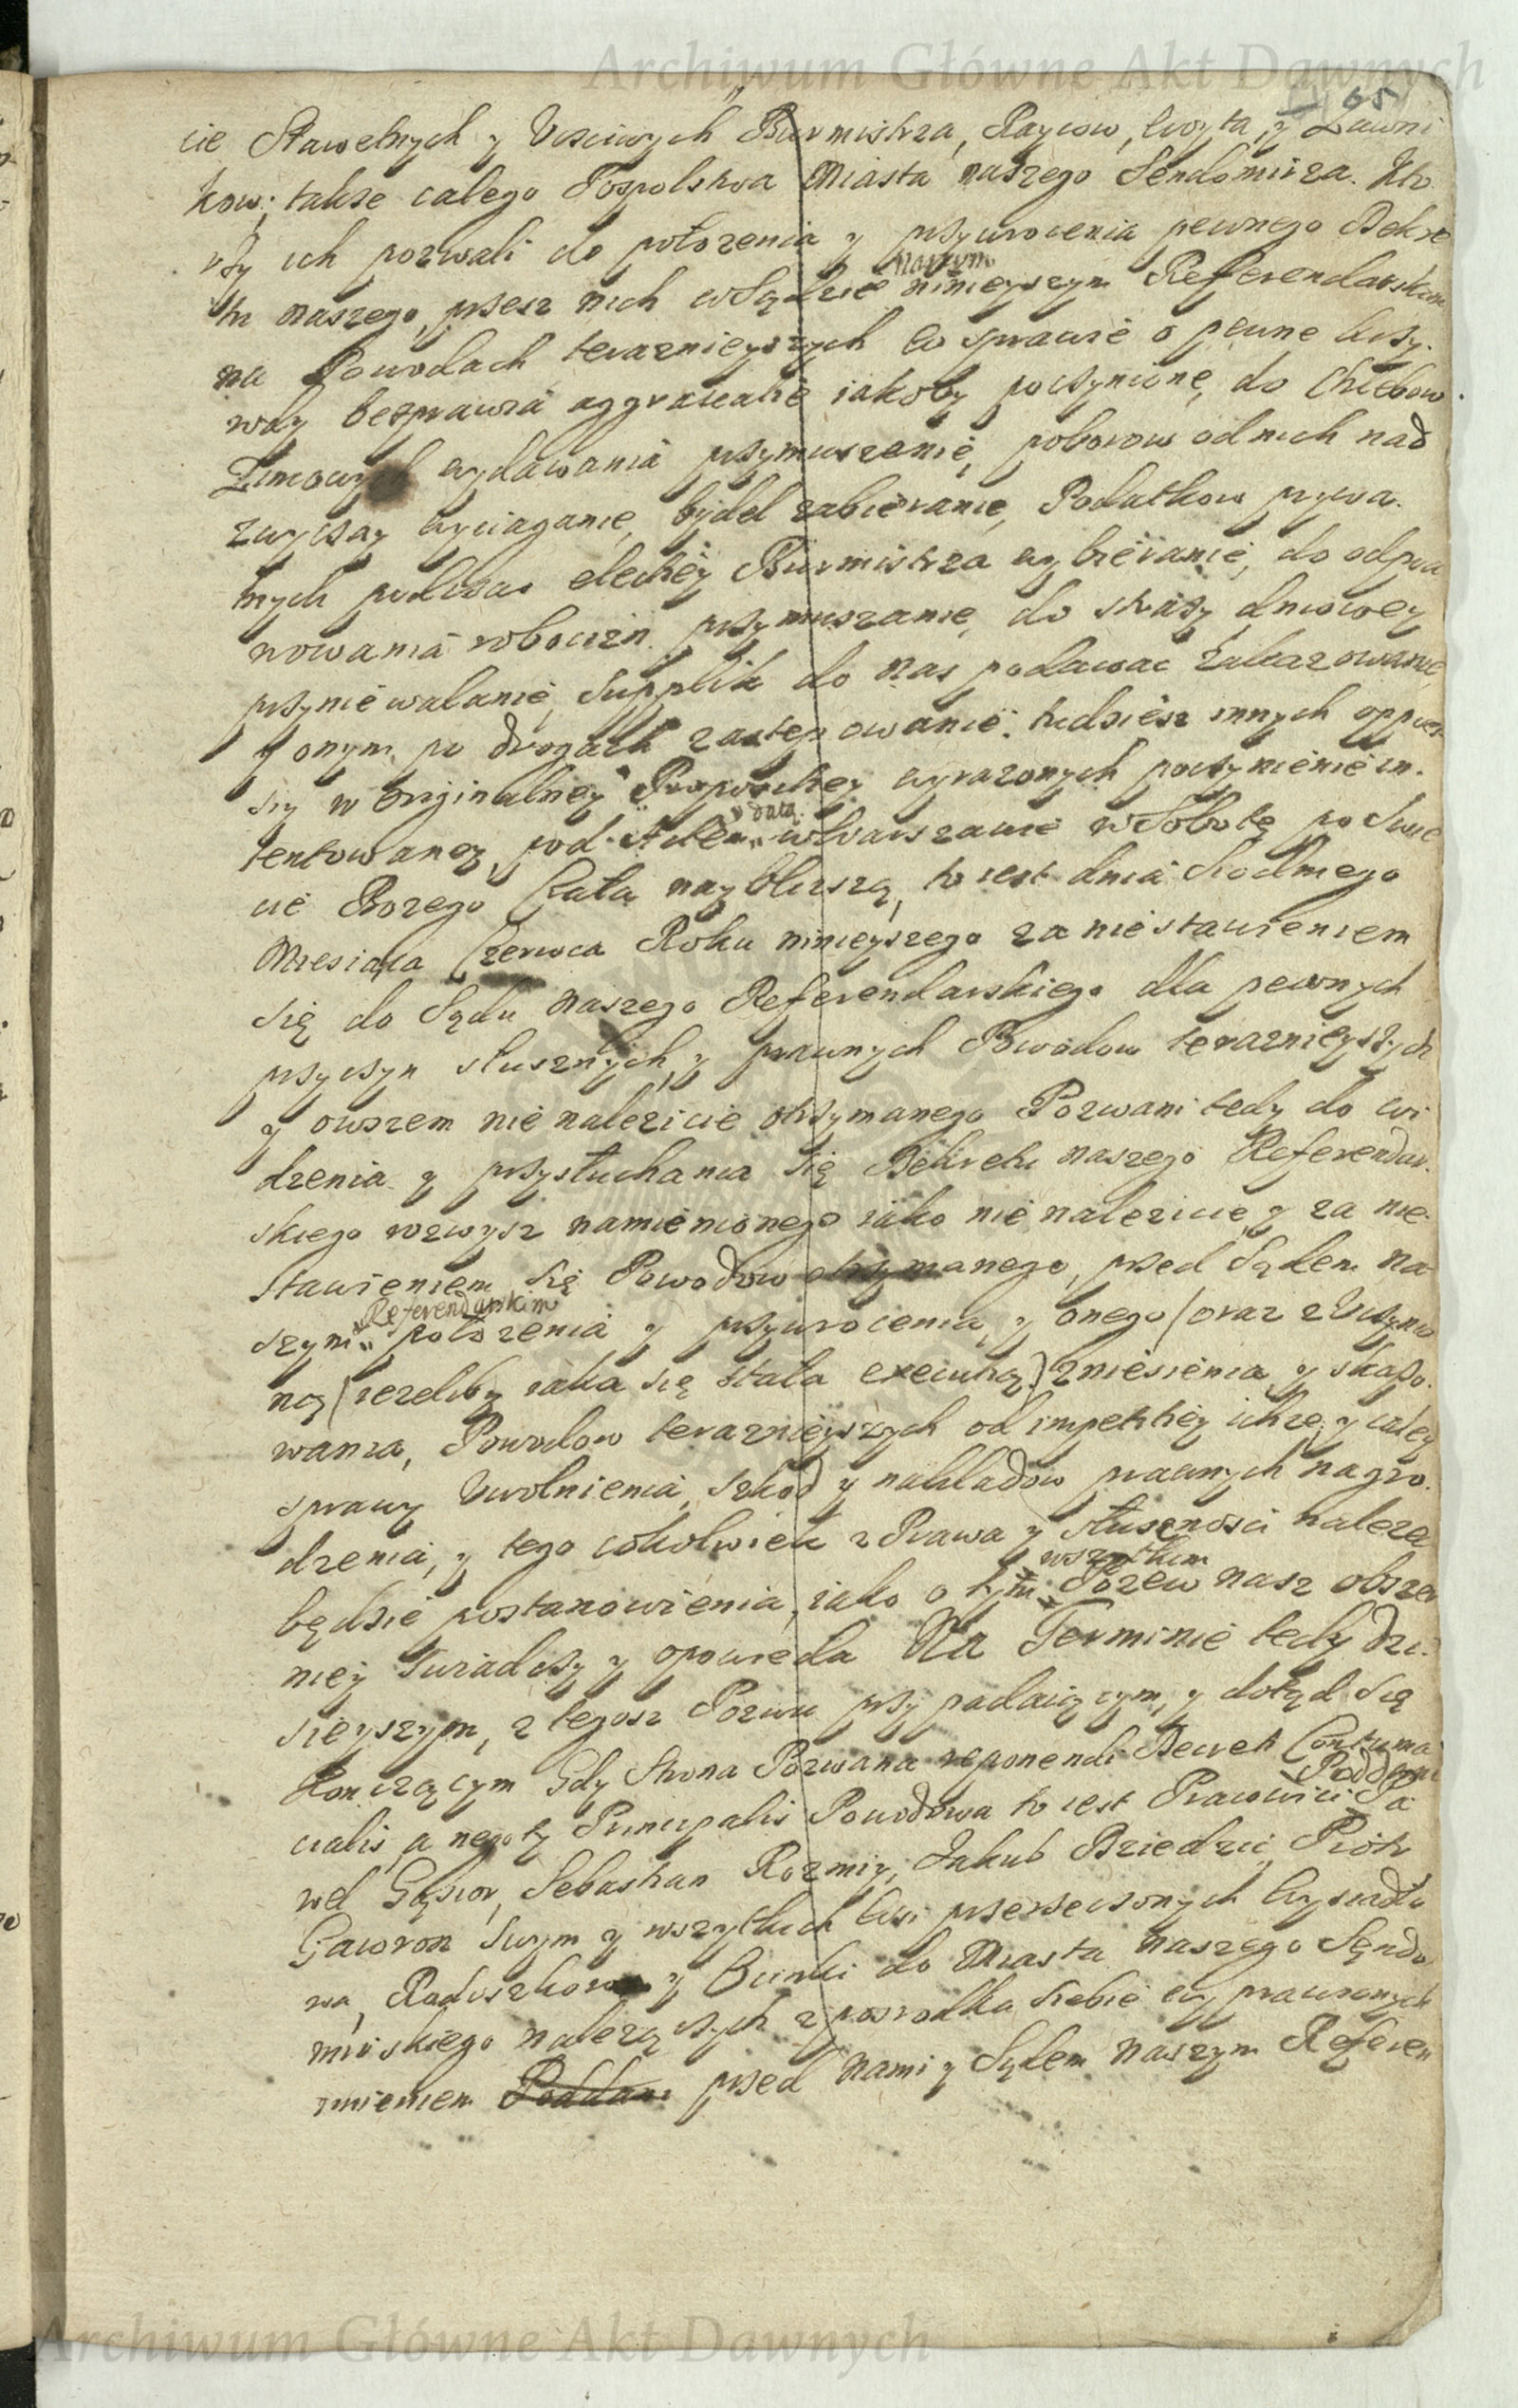 Archiwum Główne Akt Dawnych
65
cie Sławetnych y Uściwych Burmistrza, Raycow, Woyta, y Ławni
kow; takze całego Pospolstwa Miasta naszego Sendomirza. Kto
rzy ich pozwali do połozenia y przywrocenia pewnego Dekre
tu naszego, przesz nich w Sądzie naszym ninieyszym Referendarskim
na Powodach teraznieyszych w sprawie o pewne krzy.
wdy besprawia aggrawatie iakoby poczynione, do Chlebow
Zimowych wydawania przymuszanie, poborow od nich nad
zwyczay wyciaganie, bydeł zabieranie, Podatkow prywa.
tnych podczas elekciey Burmistrza wybieranie, do odpra
wowania robocizn przymuszanie, do strazy dniowey
przyniewalanie, Supplik do nas podawac Zakazowanie,
y onym po drogach zastępowanie, tudziesz innych oppres
siy w Originalney Propozicyey wyrazonych poczynienie in.
tentowaney, pod Aktem y datą w Warszawie w Sobotę po Swie
cie Bozego Ciała naybliszą, to iest dnia Siodmego
Miesiąca Czerwca Roku ninieyszego za niestawieniem
się do Sądu naszego Referendarskiego dla pewnych
przyczyn słusznych, y prawnych Powodow teraznieyszych
y owszem nie nalezicie otrzymanego Pozwani tedy do wi
dzenia y przysłuchania się Dekretu naszego Referendar.
skiego wzwysz namienionego iako nie nalezicie y za nie
stawieniem się Powodow otrzymanego, przed Sądem na
szym Referendarskim połozenia y przywrocenia, y onego (oraz z Uczynio
ną (iezeliby iaka się stała executią) zniesienia y skaso.
wania, Powodow teraznieyszych od impetitiey ichze, y całey
sprawy Uwolnienia, szkod y nakładow prawnych nagro.
dzenia, y tego cokolwiek z Prawa y słusznosci nalezec
będzie postanowienia, iako o tym wszytkim Pozew nasz obszer
niey swiadczy y opowieda Na Terminie tedy dzi.
sieyszym, z tegosz Pozwu przypadaiącym, y dotąd się
konczącym Gdy Strona Pozwana reponendi Decreti Contuma
cialis a negoty Principalis Powodowa to iest Pracowici Poddani Pa
weł Gąsior, Sebastian Rozmiy, Jakub Dziedzic, Piotr
Gawron swym y wszytkich Wsi przerzeczonych Wysiadło
wa, Radoszkowa y do Miasta naszego Sędo
mirskiego nalezących z posrodka siebie wyprawionych
imieniem Poddani przed Nami y Sądem naszym Referen
Archiwum Główne Akt Dawnych